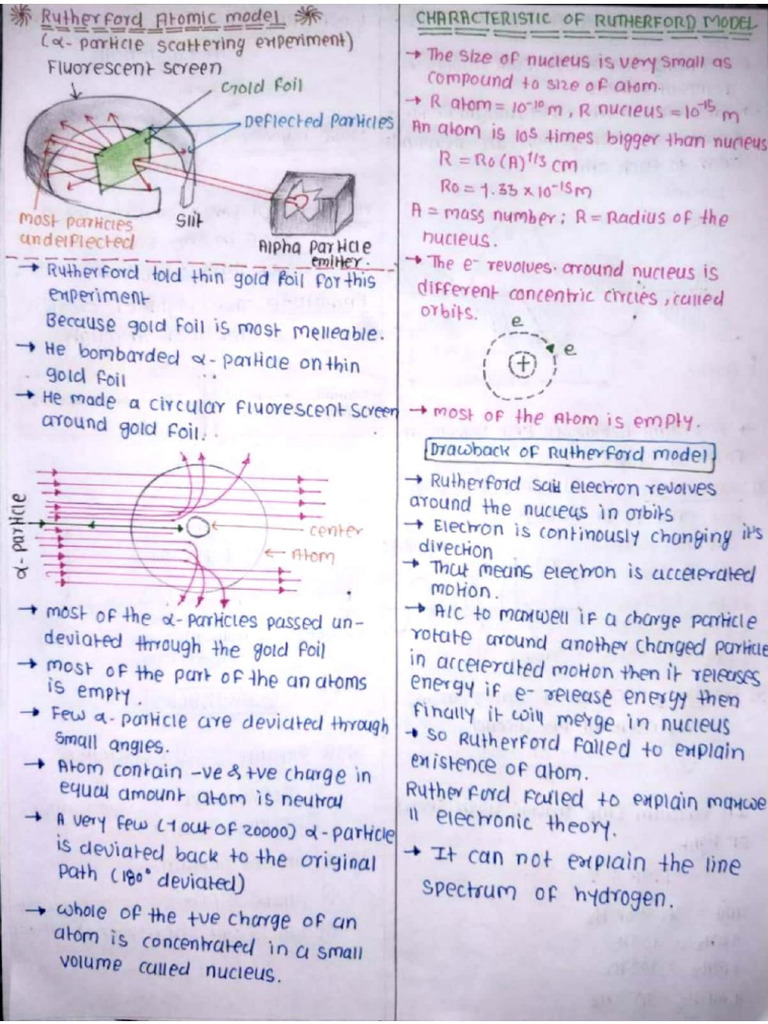 Rutherford Atomic model
(α- particle scattering experiment)
Fluorescent screen
Gold foil
Deflected Particles
most particles
undeflected
Slit
Alpha particle
emitter.
→ Rutherford told thin gold foil for this
experiment
Because gold foil is most melleable.
→ He bombarded α- particle on thin
gold foil
→ He made a circular fluorescent screen
around gold foil.
α- particle
center
Atom
→ most of the α- particles passed un-
deviated through the gold foil
→ most of the part of the an atoms
is empty.
→ Few α- particle are deviated through
small angles.
→ Atom contain -ve & +ve charge in
equal amount atom is neutral
→ A very few (1 out of 20000) α- particle
is deviated back to the original
path (180° deviated)
→ whole of the +ve charge of an
atom is concentrated in a small
volume called nucleus.
CHARACTERISTIC OF RUTHERFORD MODEL
→ The size of nucleus is very small as
compound to size of atom.
→ R atom = 10⁻¹⁰ m, R nucleus = 10⁻¹⁵ m
An atom is 10s times bigger than nucleus
R = Ro (A)^1/3 cm
Ro = 1.33 × 10⁻¹⁵ m
A = mass number; R = Radius of the
nucleus.
→ The e⁻ revolves around nucleus is
different concentric circles, called
orbits.
e
e
+
→ most of the Atom is empty.
Drawback of Rutherford model
→ Rutherford said electron revolves
around the nucleus in orbits
→ Electron is continously changing it's
direction
→ That means electron is accelerated
motion.
→ A/C to maxwell if a charge particle
rotate around another charged particle
in accelerated motion then it releases
energy if e- release energy then
finally it will merge in nucleus
→ so Rutherford failed to explain
existence of atom.
Rutherford failed to explain maxwe
ll electronic theory.
→ It can not explain the line
spectrum of hydrogen.